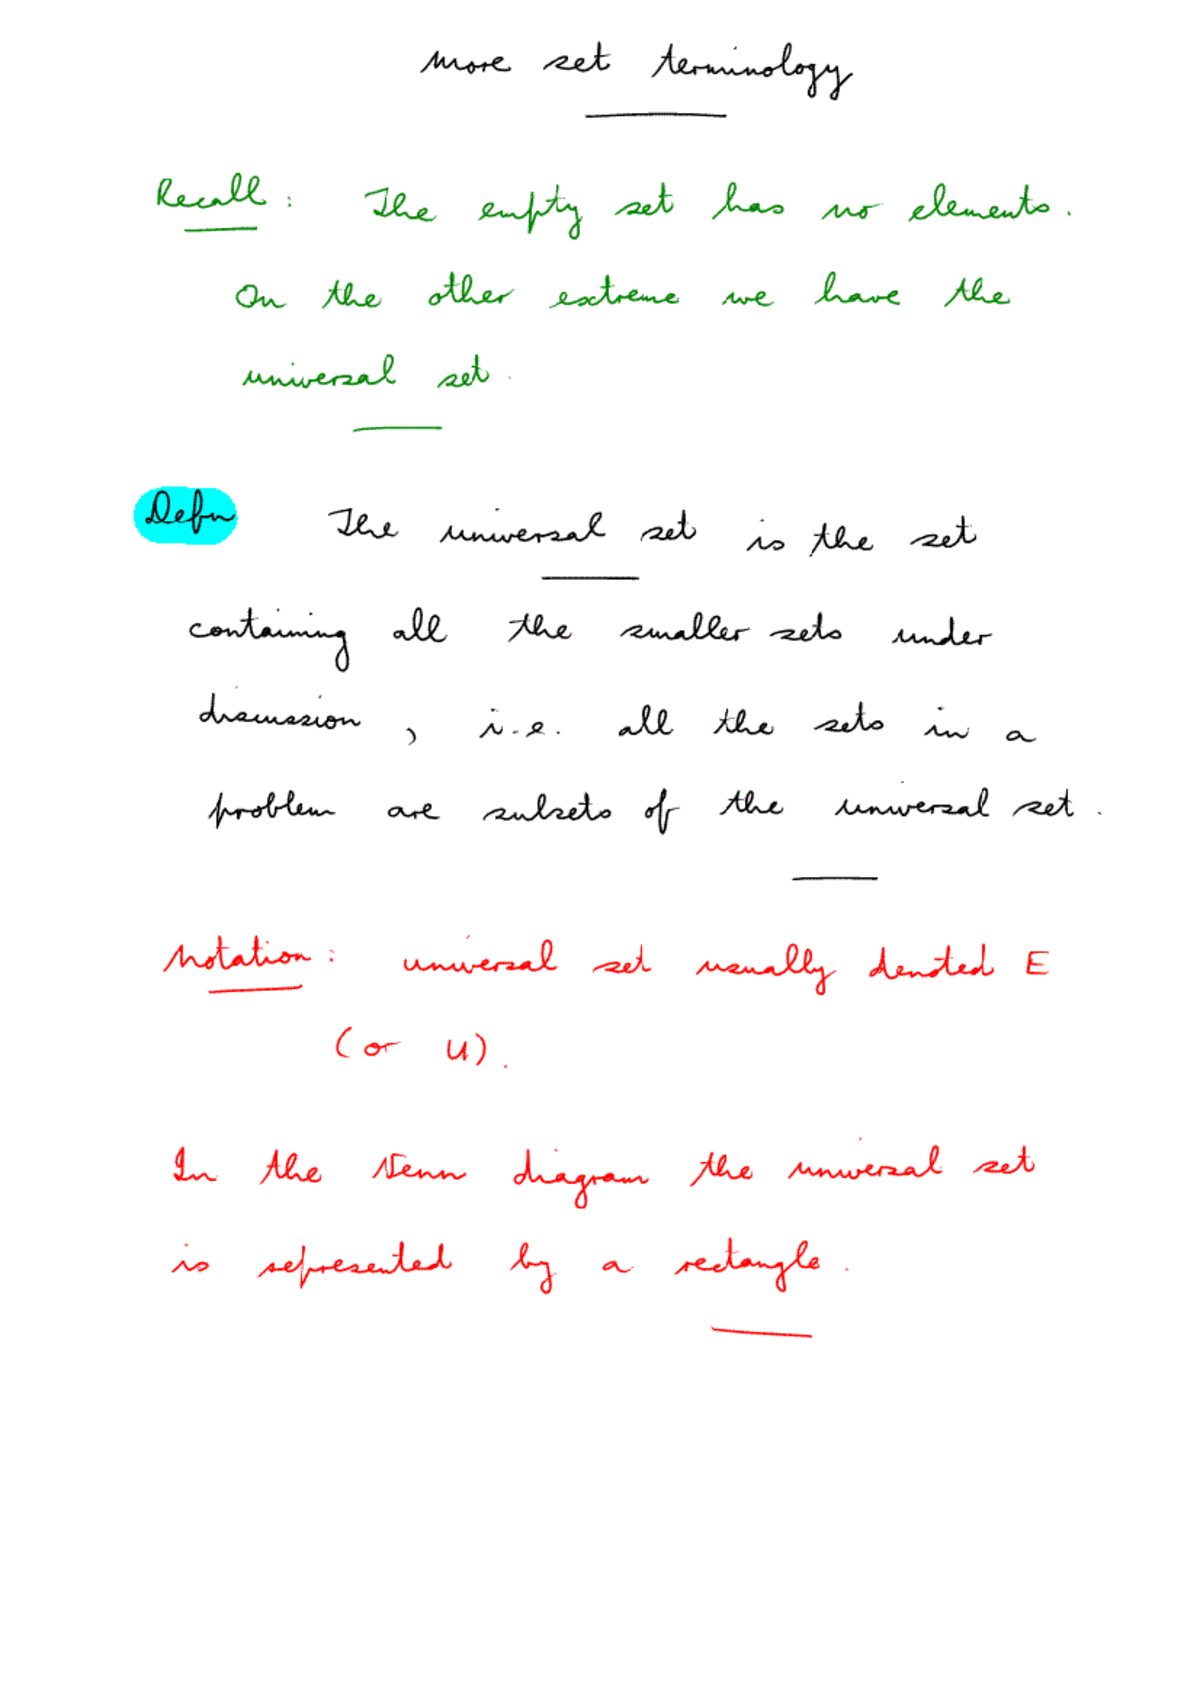 More set terminology
Recall: The empty set has no elements.
On the other extreme we have the
universal set.
Defn The universal set is the set
containing all the smaller sets under
discussion, i.e. all the sets in a
problem are subsets of the universal set.
Notation: universal set usually denoted E
(or U).
In the Venn diagram the universal set
is represented by a rectangle.